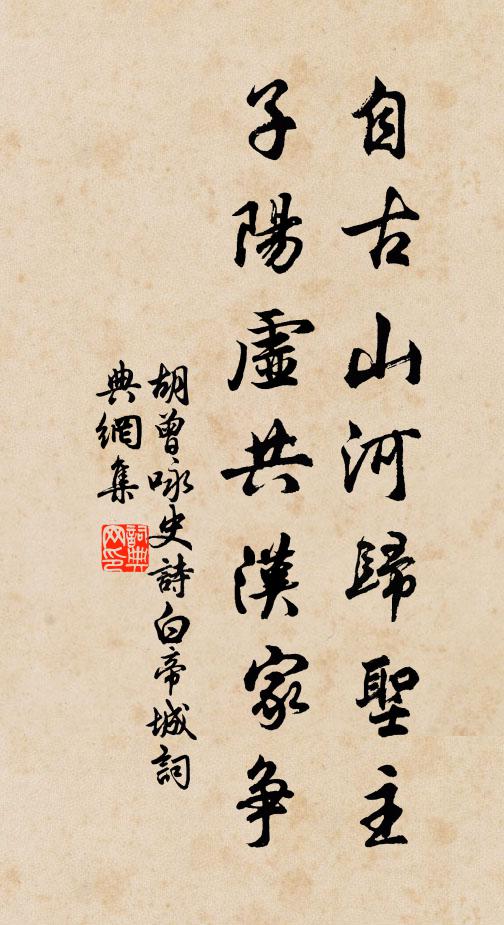 自古山河歸聖主
子陽虛共漢家爭
胡曾咏史詩白帝城詞
典網集
詞典網印